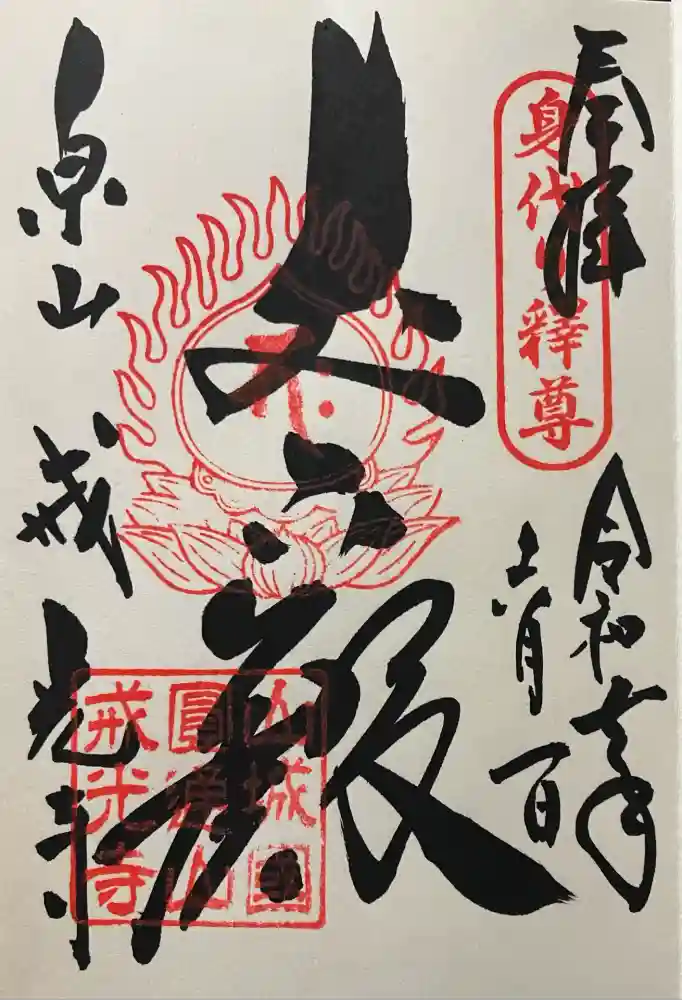 奉拝
身代り釋尊
令和七年
六月一日
丈六殿
泉山 戒光寺
山城國
圓通山
戒光寺